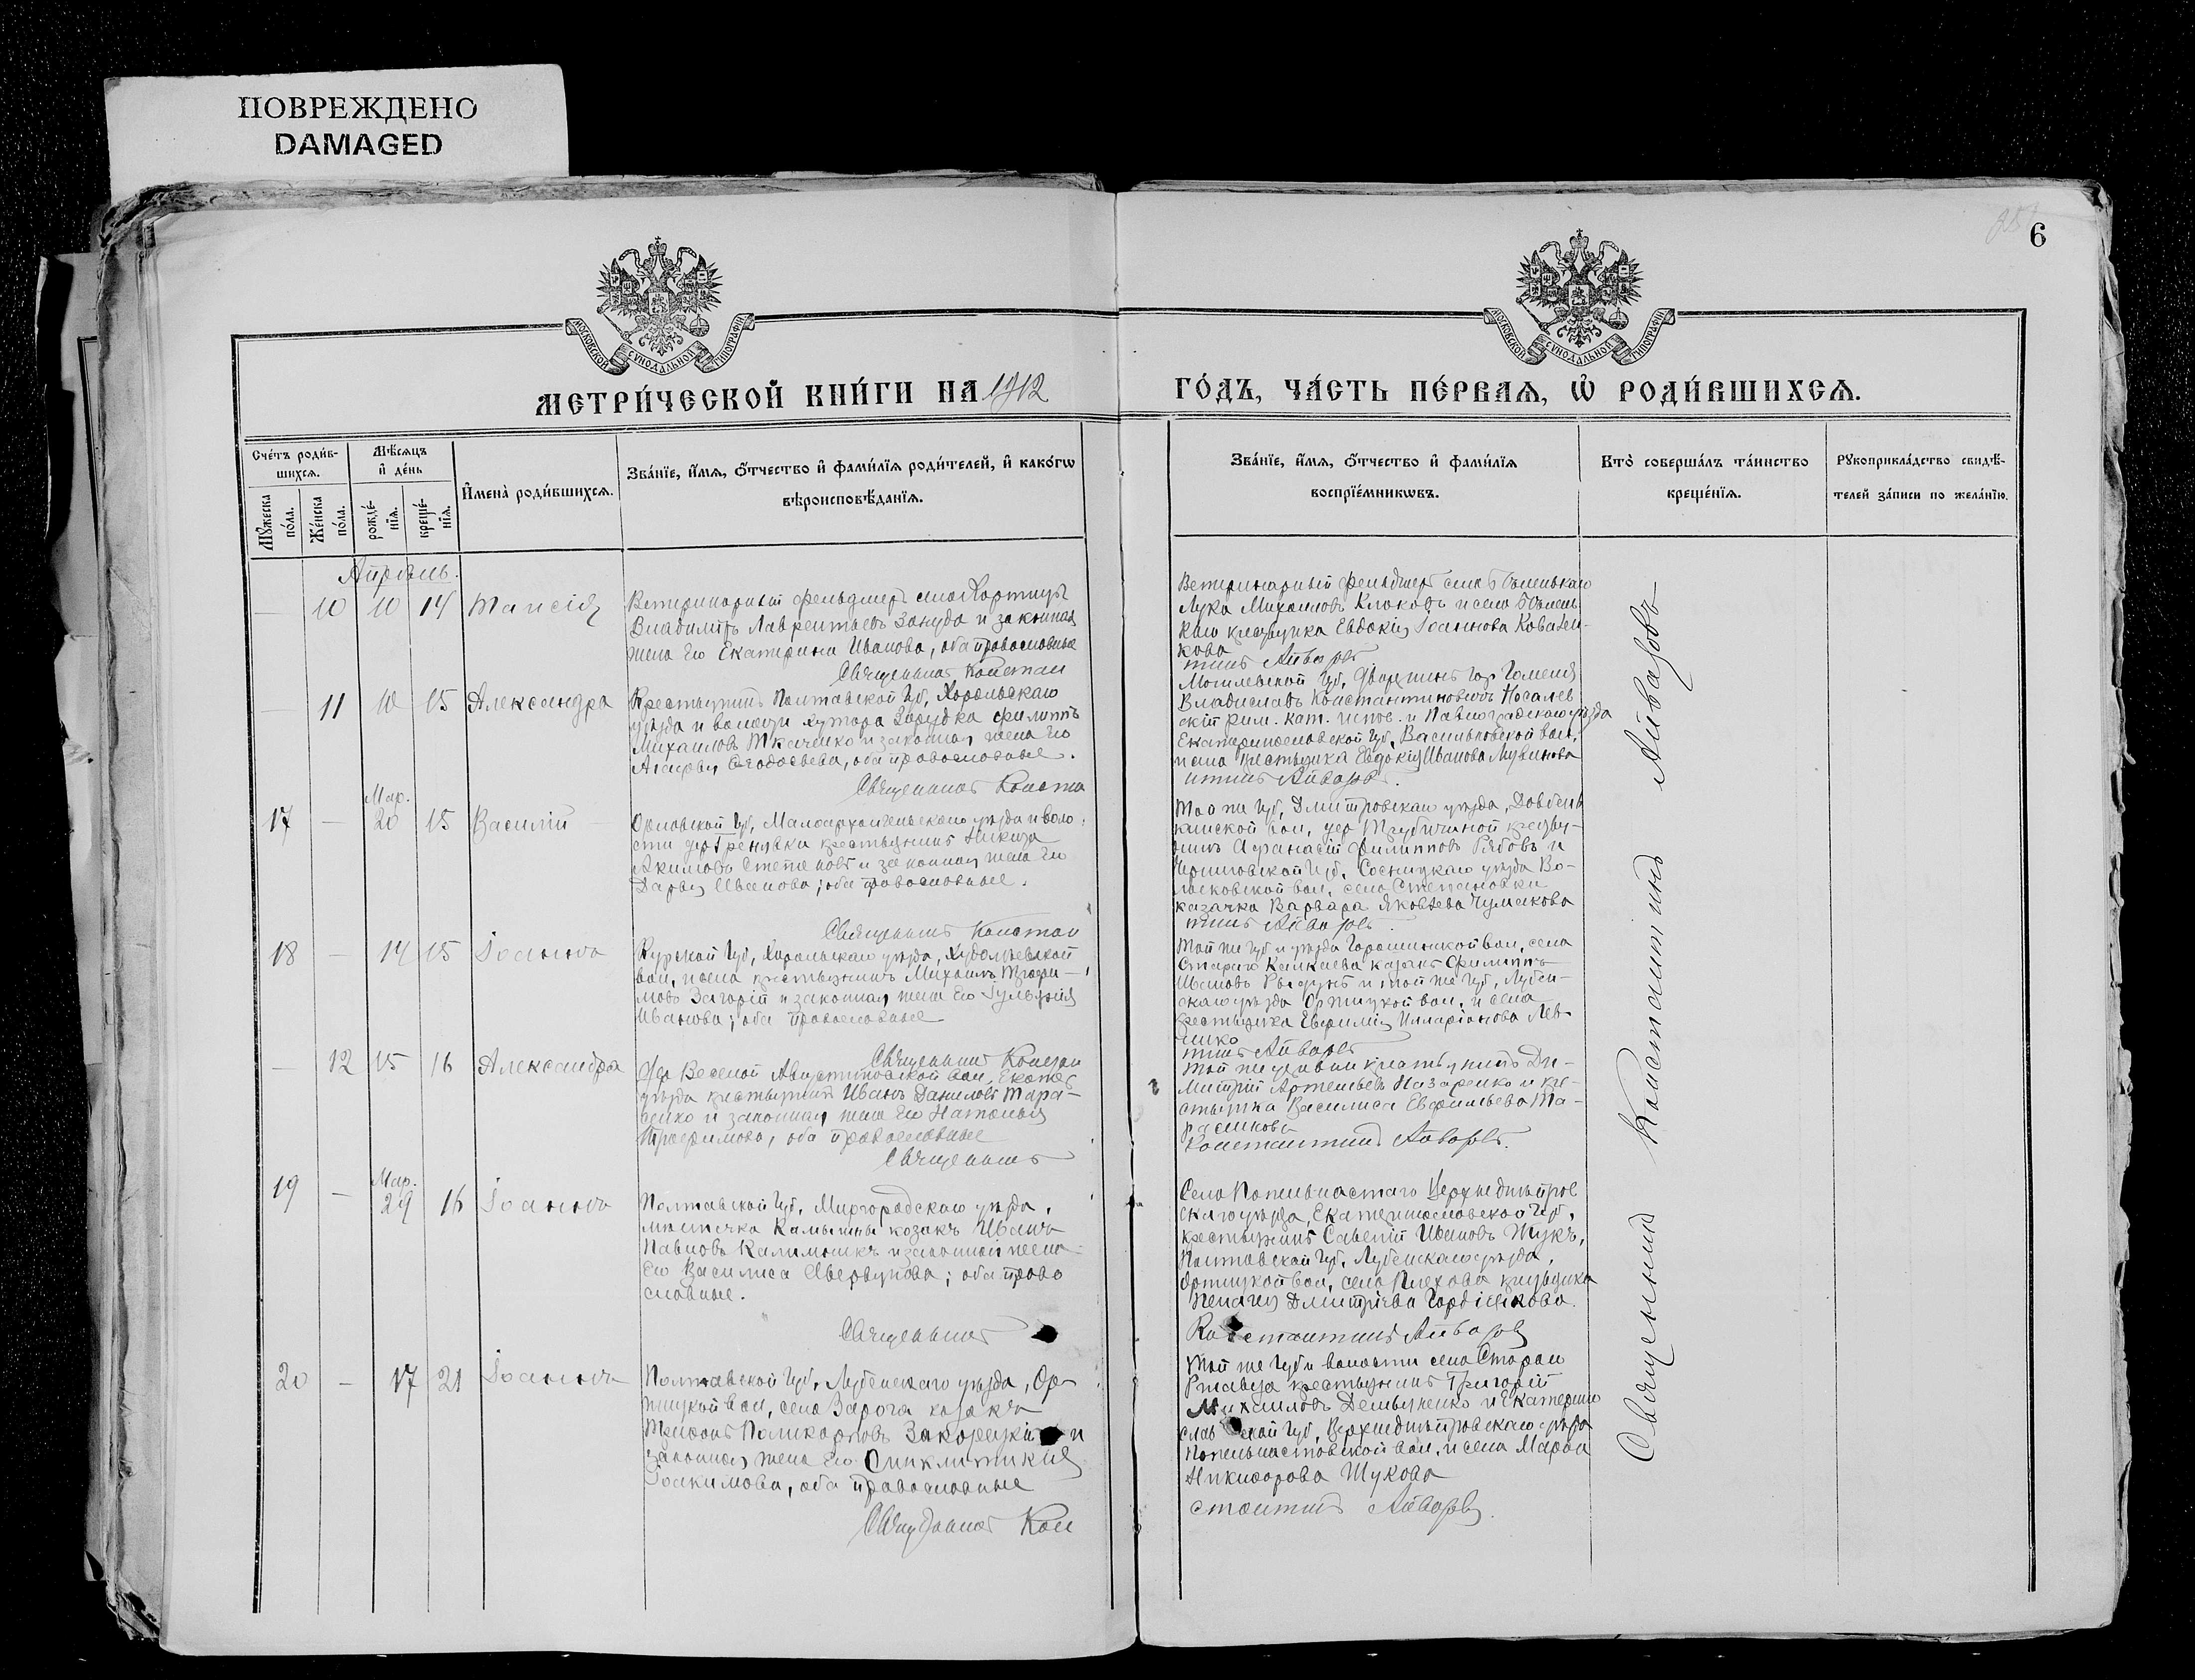 ПОВРЕЖДЕНО
DAMAGED
6
МОСКОВСКОЙ СѴНОДАЛЬНОЙ ТИПОГРАФІИ
МОСКОВСКОЙ СѴНОДАЛЬНОЙ ТИПОГРАФІИ
МЕТРИ́ЧЕСКОЙ КНИ́ГИ НА 1912
ГО́ДЪ, ЧА́СТЬ ПЕ́РВАѦ, Ѽ РОДИ́ВШИХСѦ.
Сче́тъ роди́в-
шихсѧ.
Мѣ́сѧцъ
и҆ де́нь
Мꙋ́жеска
по́ла.
Же́нска
по́ла.
рожде́-
нїѧ.
креще́-
нїѧ.
И҆мена̀ роди́вшихсѧ.
Зва́нїе, и҆́мѧ, ѻ҆́тчество и҆ фами́лїѧ роди́телей, и҆ како́гѡ
вѣроисповѣ́данїѧ.
Зва́нїе, и҆́мѧ, ѻ҆́тчество и҆ фами́лїѧ
воспрїе́мникѡвъ.
Кто̀ соверша́лъ та́инство
креще́нїѧ.
Рꙋкоприкла́дство свидѣ́-
телей за́писи по жела́нїю.
Апрѣль.
— 10 10 14 Таисія
Ветеринарный фельдшеръ села
Владиміръ Лаврентьевъ Зануда и законная
жена его Екатерина Иванова, оба православные
Священникъ Констан
Ветеринарный фельдшеръ села
Лука Михаиловъ Клоковъ и села
Евдокія Іоаннова Ковален-
кова
тинъ Айвазовъ
— 11 10 15 Александра
Крестьянинъ Полтавской губ, Хорольскаго
уѣзда и волости хутора Зарудка Филиппъ
Михаиловъ Ткаченко и законная жена его
Агафія Феодосьева, оба православные.
Священникъ Конста
Могилевской губ, дворянинъ гор Гомеля
Владиславъ Константиновичъ Носалев
скій рим. кат. испов. и Павлоградскаго уѣзда
Екатеринославской губ, Васильковской вол,
и села крестьянка Евдокія Иванова
нтинъ Айвазовъ.
17 — Мар. 20 15 Василій
Орловской губ, Малоархангельскаго уѣзда и воло
сти дер Греневки крестьянинъ Никита
Акимовъ Степановъ и законная жена его
Дарья Иванова; оба православные.
Священникъ Констан
Той же губ, Дмитровскаго уѣзда,
вол, дер Трубичиной крестья-
нинъ Афанасій Филипповъ Рябовъ и
Черниговской губ, Сосницкаго уѣзда Во-
лынковской вол, села Степановки
казачка Варвара Яковлева Чумакова
тинъ Айвазовъ.
18 — 14 15 Іоаннъ
губ, Хорольскаго уѣзда,
вол, и села крестьянинъ Михаилъ Трофи-
мовъ Загорій и законная жена его Гуліянія
Иванова; оба православные
Священникъ Констан
Той же губ и уѣзда Горошинской вол, села
Стараго Калкаева казакъ Филиппъ
Ивановъ и той же губ, Лубен-
скаго уѣзда Оржицкой вол, и села
крестьянка Евфимія Илларіонова Лев-
ченко
тинъ Айвазовъ
— 12 15 16 Александра
Дер Веселой Августиновской вол, Екатер
уѣзда крестьянинъ Иванъ Даниловъ Тара-
сенко и законная жена его Наталія
Трофимова, оба православные
Священникъ
Той же дер и вол крестьянинъ Ди-
митрій Артемьевъ Назаренко и кре-
стьянка Василиса Евфимьева Та-
расенкова
Константинъ Айвазовъ.
19 — Мар. 29 16 Іоаннъ
Полтавской губ, Миргородскаго уѣзда,
мѣстечка Камышны козакъ Иванъ
Павловъ и законная жена
его Василиса Аверкіева; оба право
славные.
Священникъ
Села Попельнастаго Верхнеднѣпров
скаго уѣзда, Екатеринославской губ,
крестьянинъ Савелій Ивановъ Жукъ,
Полтавской губ, Лубенскаго уѣзда,
Оржицкой вол, села Плехова крестьянка
Пелагія Димитріева Гордіенкова.
Константинъ Айвазовъ
20 — 17 21 Іоаннъ
Полтавской губ, Лубенскаго уѣзда, Ор-
жицкой вол, села Зарога козакъ
Трифонъ Поликарповъ и
законная жена его Синклитикія
Іоакимова, оба православные
Священникъ Кон
Той же губ и волости села Стараго
крестьянинъ Григорій
Михаиловъ Демьяненко и Екатерино
славской губ, Верхнеднѣпровскаго уѣзда
Попельнастовской вол, и села Марія
Никифорова Жукова
стантинъ Айвазовъ.
Священникъ Константинъ Айвазовъ